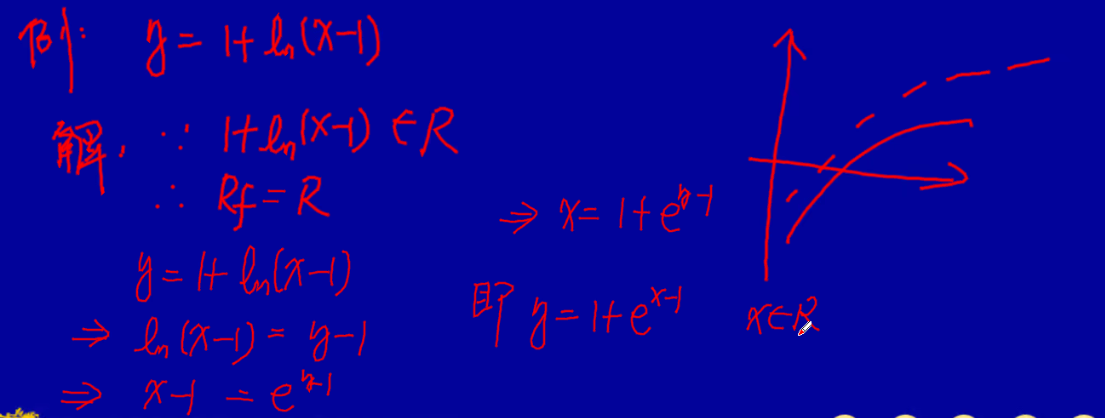 例: y = 1+ln(x-1)
解, ∵ 1+ln(x-1) ∈ R
∴ Rf = R
y = 1+ln(x-1)
⇒ ln(x-1) = y-1
⇒ x-1 = e^{y-1}
⇒ x = 1+e^{y-1}
即 y = 1+e^{x-1} x∈R